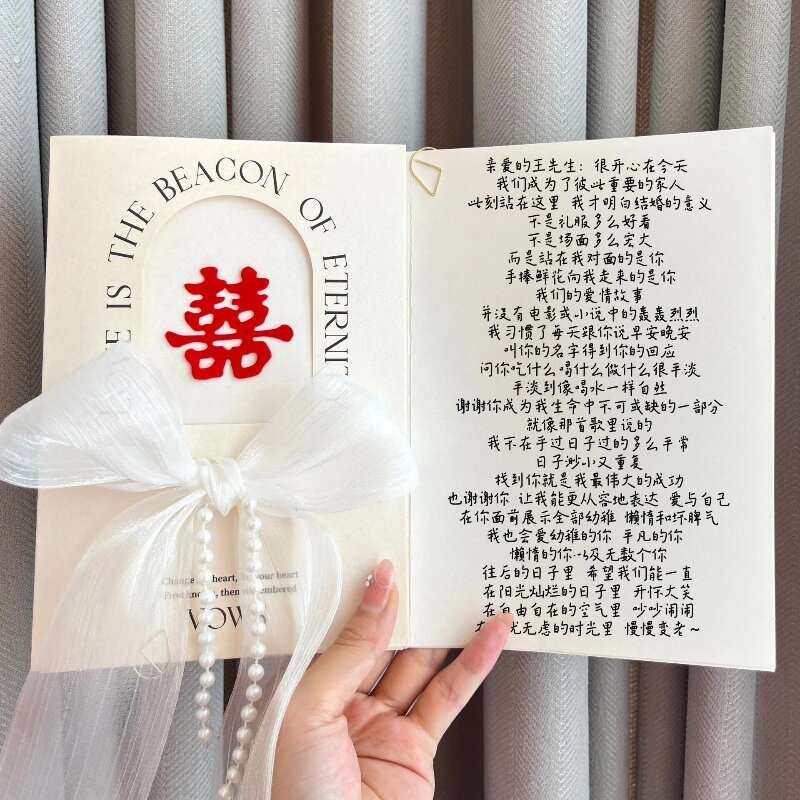 IS THE BEACON OF
囍
heart, your heart
First then
VOWS
亲爱的王先生: 很开心在今天
我们成为了彼此重要的家人
此刻站在这里 我才明白结婚的意义
不是礼服多么好看
不是场面多么宏大
而是站在我对面的是你
手捧鲜花向我走来的是你
我们的爱情故事
并没有电影或小说中的轰轰烈烈
我习惯了每天跟你说早安晚安
叫你的名字得到你的回应
问你吃什么喝什么做什么很平淡
平淡到像喝水一样自然
谢谢你成为我生命中不可或缺的一部分
就像那首歌里说的
我不在乎过日子过的多么平常
日子渺小又重复
找到你就是我最伟大的成功
也谢谢你 让我能更从容地表达 爱与自己
在你面前展示全部幼稚 懒惰和坏脾气
我也会爱幼稚的你 平凡的你
懒惰的你以及无数个你
往后的日子里 希望我们能一直
在阳光灿烂的日子里 开怀大笑
在自由自在的空气里 吵吵闹闹
忧无虑的时光里 慢慢变老~